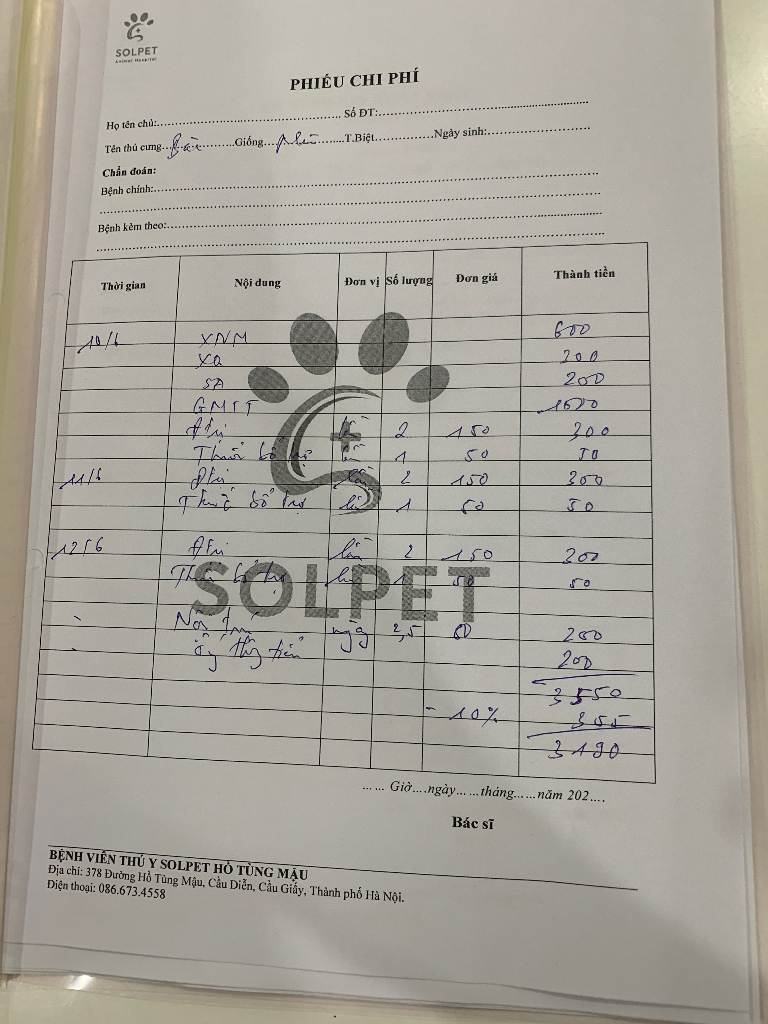 SOLPET
Animal Hospital
PHIẾU CHI PHÍ
Họ tên chủ:........ Số ĐT:........
Tên thú cưng........Giống........T.Biệt........Ngày sinh:........
Chẩn đoán:
Bệnh chính:........
Bệnh kèm theo:........
Thời gian Nội dung Đơn vị Số lượng Đơn giá Thành tiền
10/6 XNM 600
XQ 200
SA 200
GMTT
Đtrị lần 2 150 300
Thuốc bổ trợ lần 1 50 50
11/6 Đtrị lần 2 150 300
Thuốc bổ trợ lần 1 50 50
12/6 Đtrị lần 2 150 300
Thuốc bổ trợ lần 1 50 50
SOLPET
Nội trú ngày 2,5 200
200
3550
- 10% 355
3190
...... Giờ....ngày......tháng......năm 202....
Bác sĩ
BỆNH VIÊN THÚ Y SOLPET HỒ TÙNG MẬU
Địa chỉ: 378 Đường Hồ Tùng Mậu, Cầu Diễn, Cầu Giấy, Thành phố Hà Nội.
Điện thoại: 086.673.4558